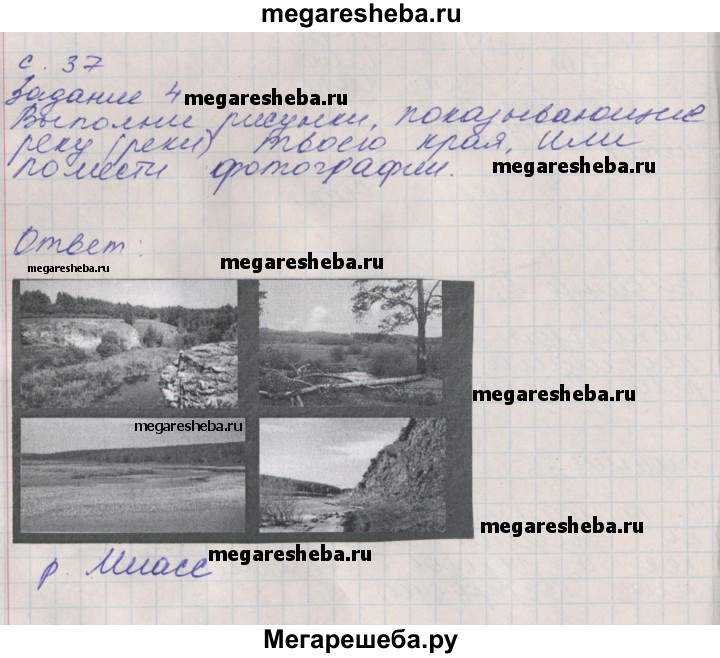 megaresheba.ru
с. 37
Задание 4 megaresheba.ru
Выполни рисунки, показывающие
реку (реки) твоего края, или
megaresheba.ru
помести фотографии.
Ответ:
megaresheba.ru
megaresheba.ru
megaresheba.ru
megaresheba.ru
megaresheba.ru
megaresheba.ru
р. Миасс
Мегарешеба.ру